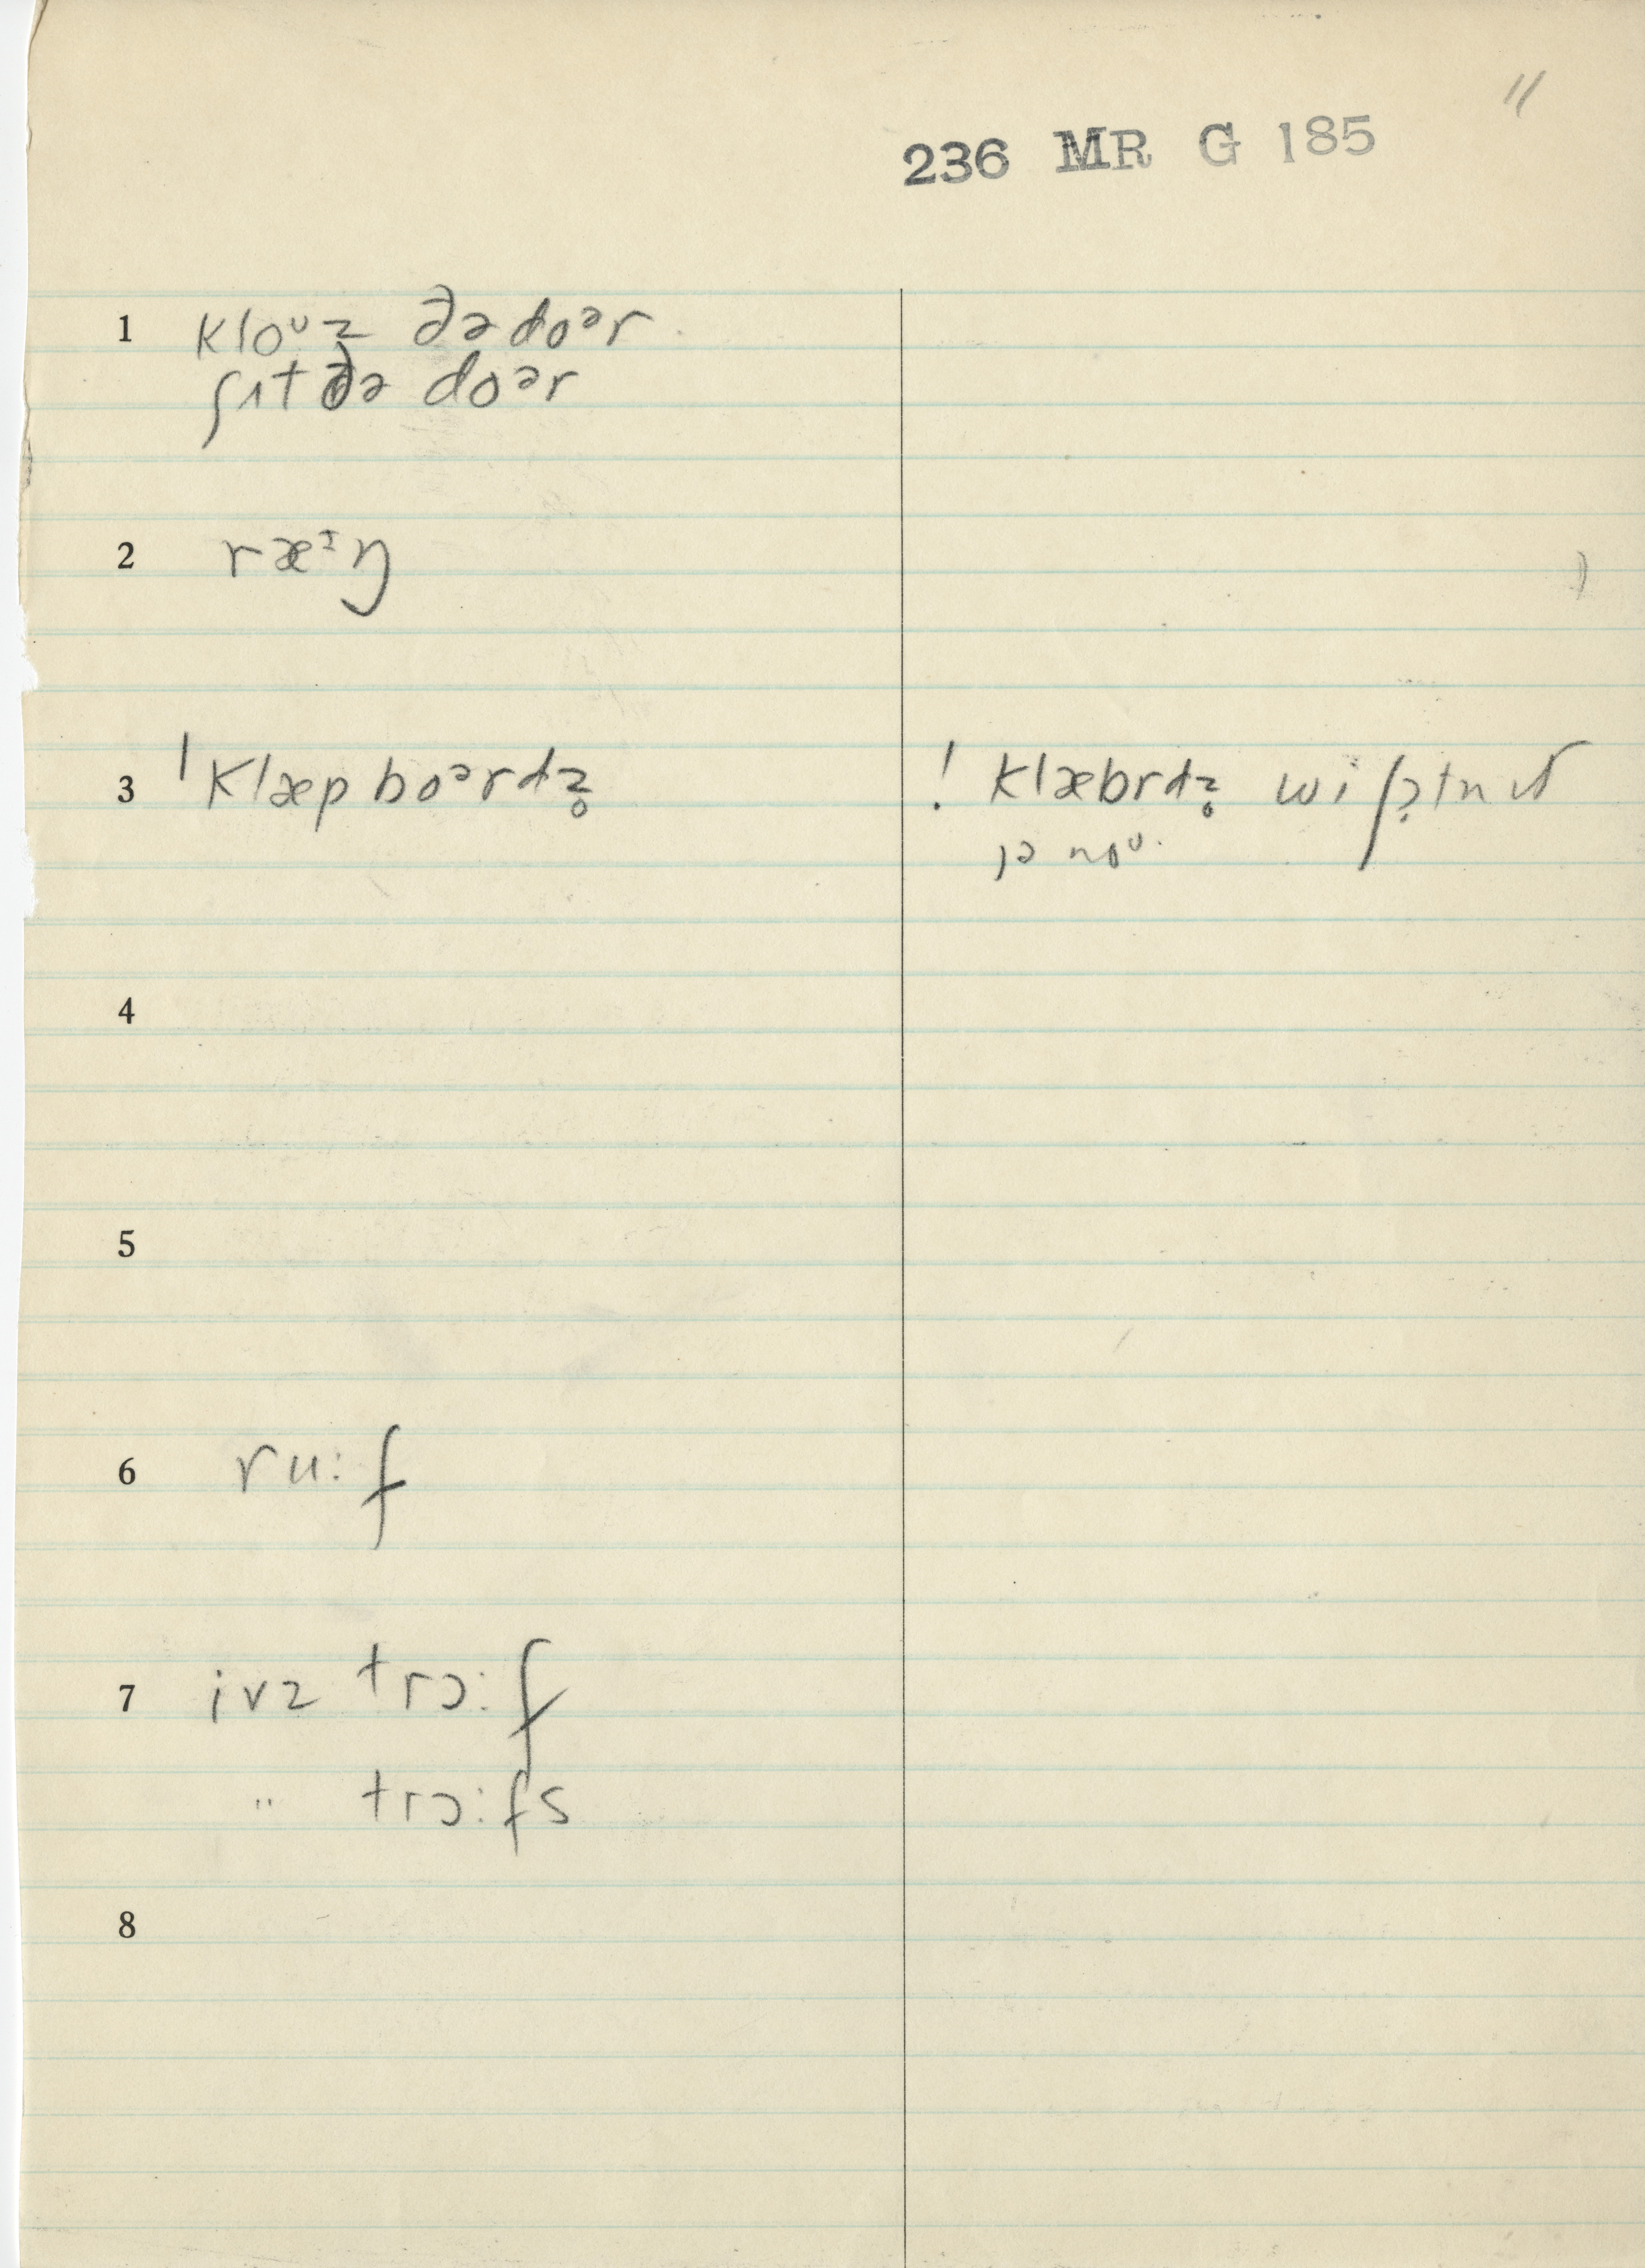 11
236 MR G 185
1 kloᶷz ðə doᵊr
ʃɪt ðə doᵊr
2 ræᶤŋ
3 ˈklæp boᵊrdz̥
! klæbrdz̥
jə noᶷ
4
5
6 ru:f
7 ivz trɔ:f
" trɔ:fs
8